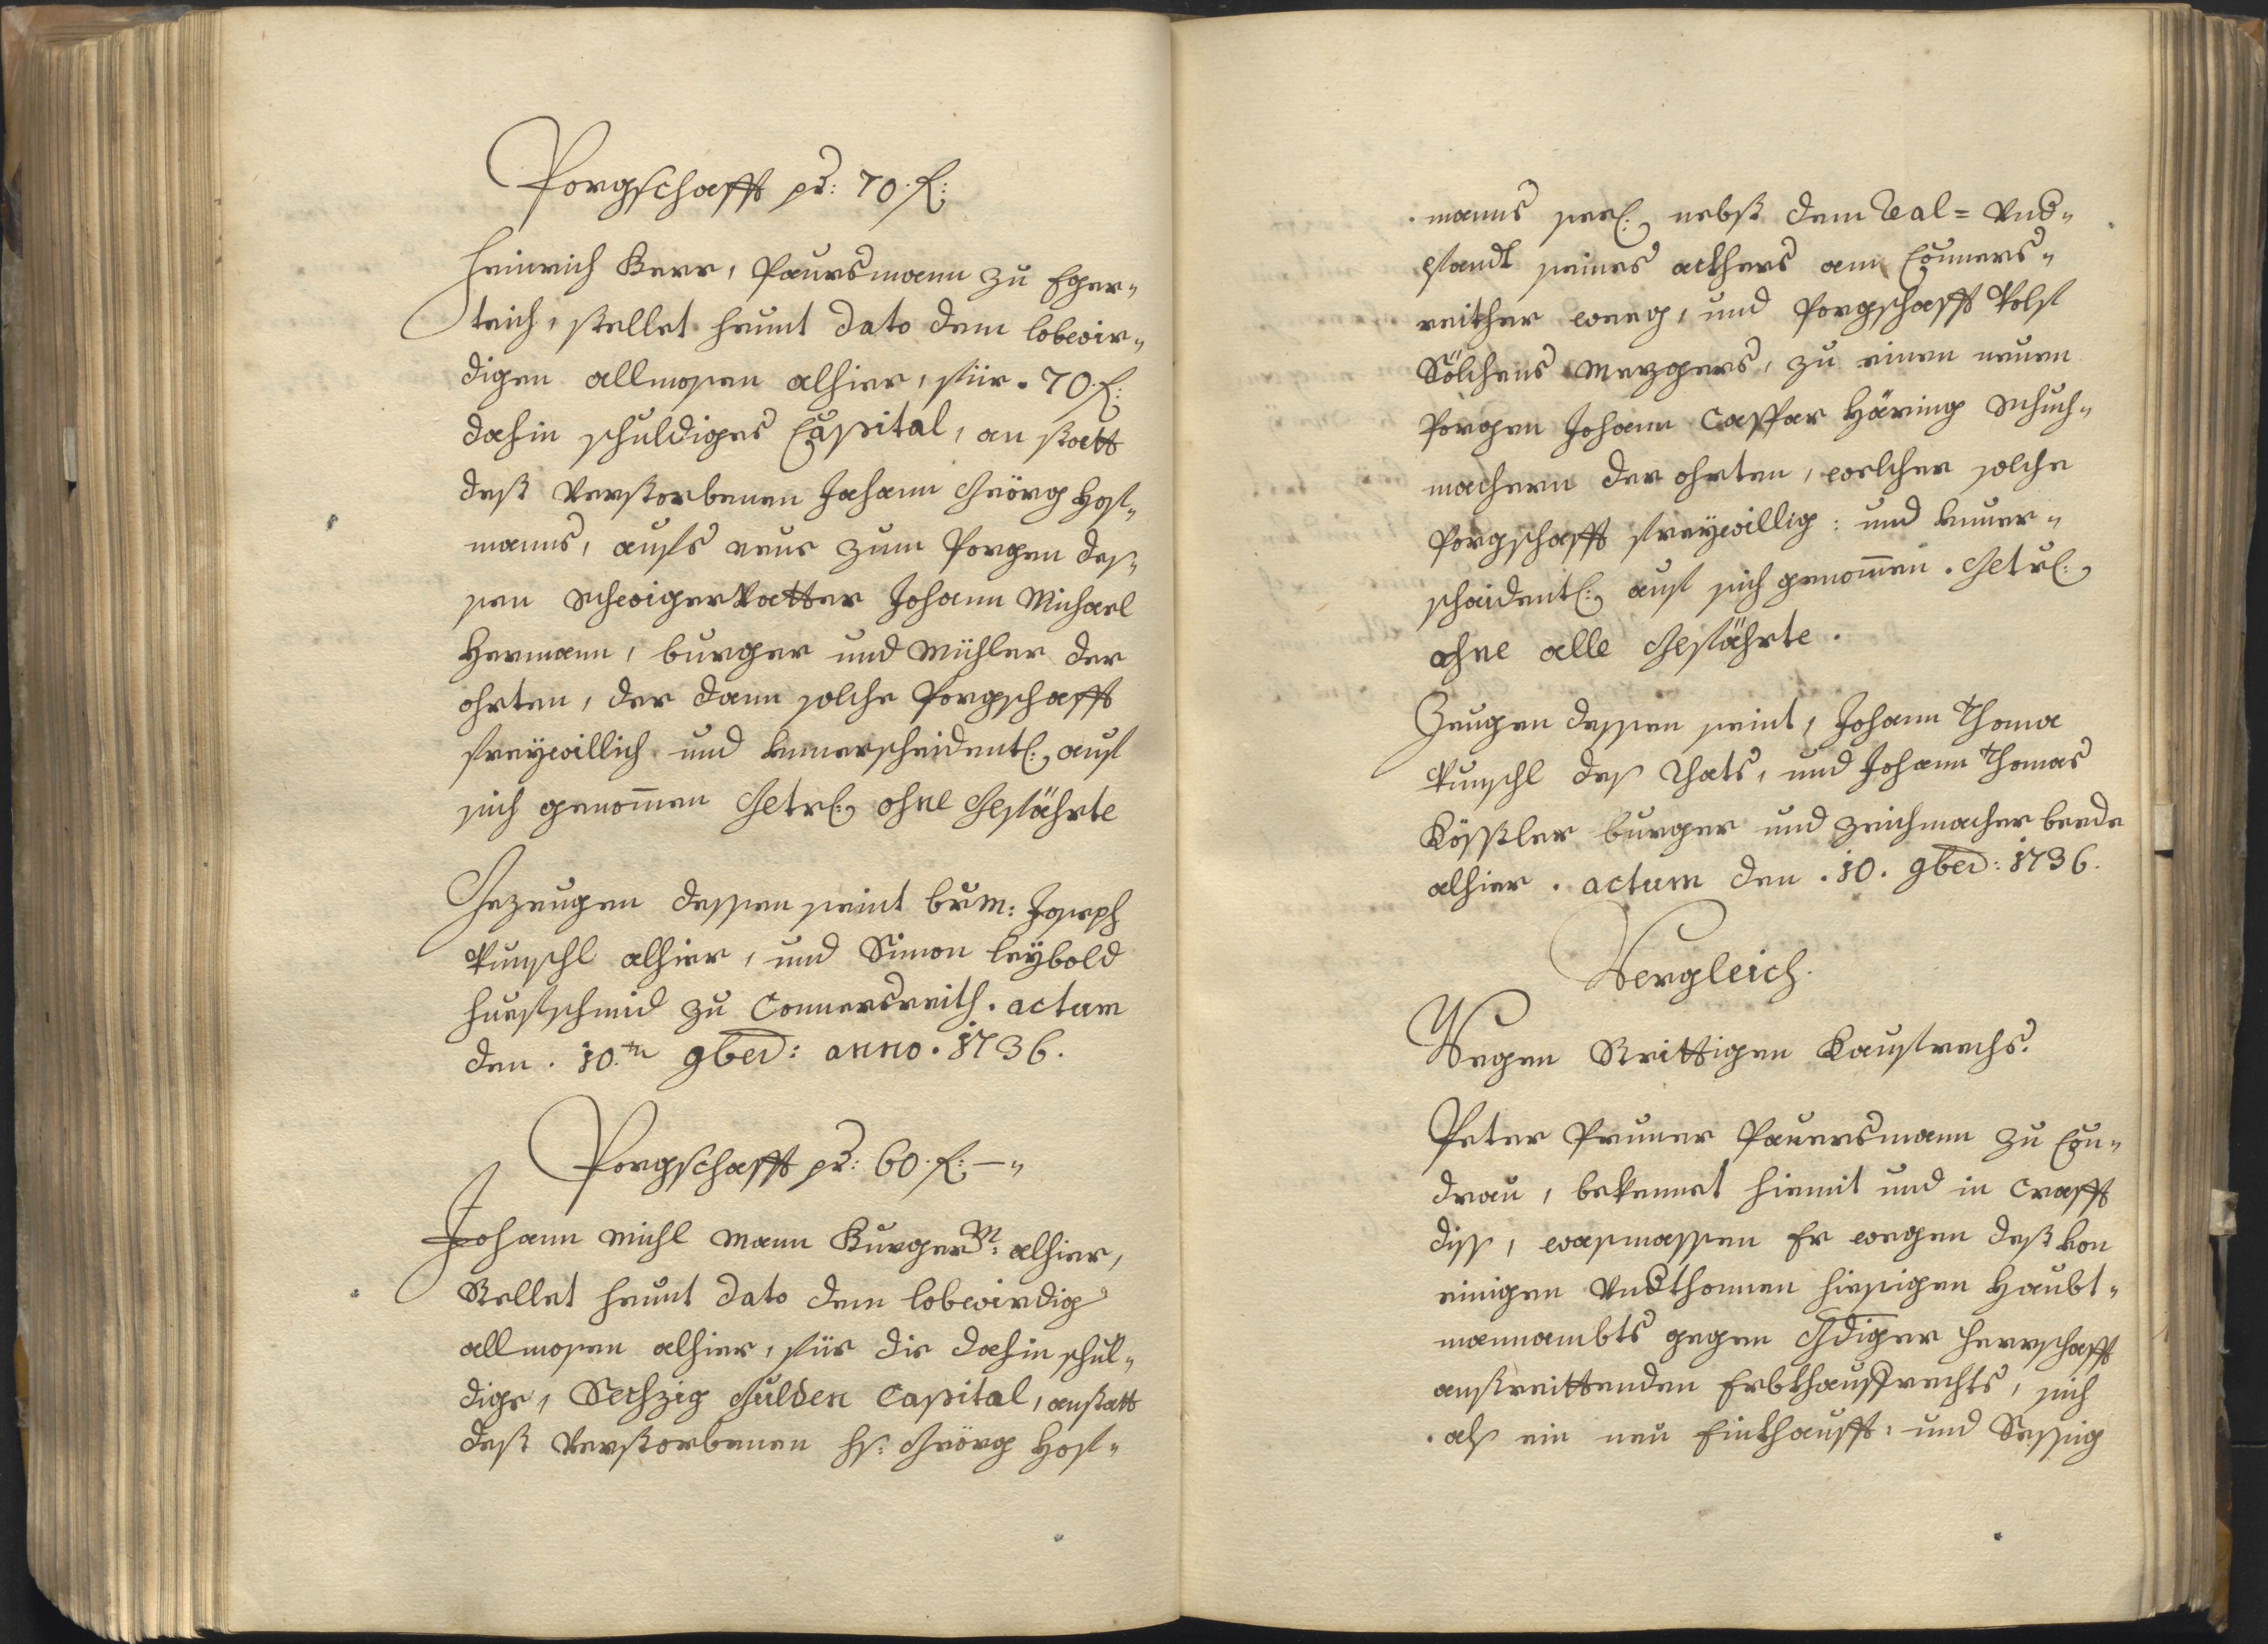 Porgschafft pr: 70. f:
Heinrich Kerr, Paursmann zu Eger„
teich, stellet heunt dato dem lobwir„
digen allmosen alhier, für. 70. f:
dahin schuldiges Capital, an statt
deß Verstorbenen Johann Geörg Hoff„
manns, aufs neue zum Porgen des„
sen Schwiger Vatter Johann Michael
Hermann, burger und Mühler der
ohrten, der dann solche Porgschafft
freywillich und unnerscheidentl: auf
sich genommen Getrl: ohne Gefährte
Gezeugen dessen seint burm: Joseph
Punschl alhier, und Simon Leybold
hueffschmid zu Connersreith. actum
den. 10.tn 9ber: anno. 1736.
Porgschafft pr: 60. f: — „
Johann Michl Mann Burger alhier,
Stellet heunt dato dem lobwirdig
allmosen alhier, für die dahin schul„
dige, Sechzig Gulden Capital, anstatt
deß Verstorbenen Hs: Geörg Hoff„
manns seel: nebst dem Real= Und„
pfandt seines ackhers am Conners„
reither weeg, und Porgschafft Wolf
Sölchens Mezgers, zu einen neuen
Porgen Johann Caspar Häring Schuch„
machern der ohrten, welcher solche
Porgschafft freywillig: und unner„
schaidentl: auf sich genommen. Getrl:
ohne alle Gefährte.
Zeugen dessen seint, Johann Thoma
Punschl des Raths, und Johann Thomas
Kößler burger und Zeichmacher beede
alhier. actum den. 10. 9ber: 1736.
Vergleich.
Wegen Strittigen Kaufrechs.
Peter Pruner Paursmann zu Con„
drau, bekennet hiemit und in Crafft
diß, wasmassen Er wegen deß von
einigen Underthonnen hiesigen Haubt„
mannambts gegen Gdiger Herrschafft
anstreittenden Erbkhauffrechts, sich
als ein neu Einkhaufft: und Sessig